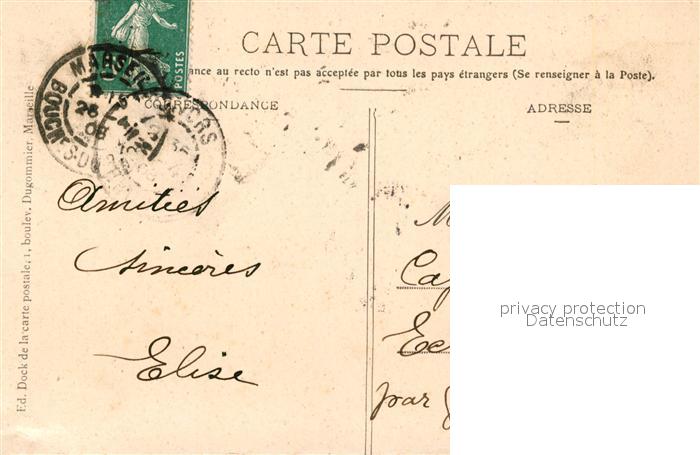 POSTES
CARTE POSTALE
ance au recto n'est pas acceptée par tous les pays étrangers (Se renseigner à la Poste).
CORRESPONDANCE
ADRESSE
MARSEIL
BOUCHES-DU-R
26
08
Amitiés
sincères
Elise
M
Ca
Ex
par
privacy protection
Datenschutz
Ed. Dock de la carte postale, 1, boulev. Dugommier, Marseille